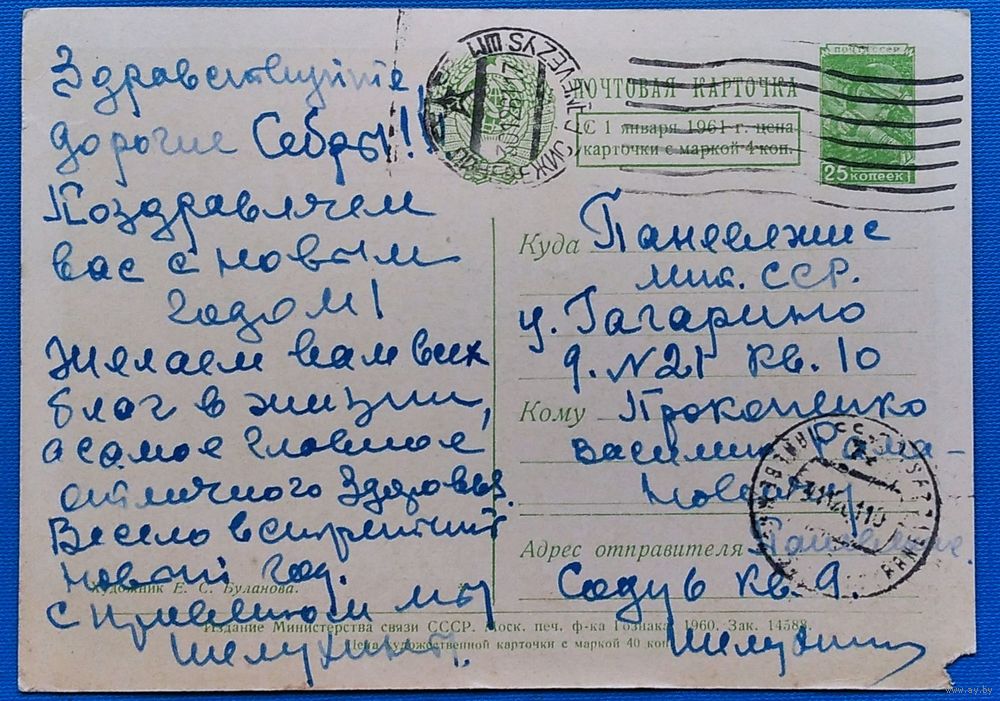 Здравствуйте,
дорогие Себры!!!
Поздравляем
вас с новым
годом!
Желаем вам всех
благ в жизни,
а самое главное
отличного здоровья.
Весело встретить
новый год.
с приветом мы
Шелухины.
ПОЧТА СССР
25 КОПЕЕК
ПОЧТОВАЯ КАРТОЧКА
С 1 января 1961 г. цена
карточки с маркой 4 коп.
PANEVEZYS
Куда Паневежис
Лит. ССР.
у. Гагарино
д. №21 кв. 10
Кому Прокопенко
Василию Рома-
новичу
Адрес отправителя Паневежис
Соду 6 кв. 9.
Шелухины
Художник Е. С. Буланова.
Издание Министерства связи СССР. Моск. печ. ф-ка Гознака. 1960. Зак. 14588.
Цена художественной карточки с маркой 40 коп.
www.ay.by